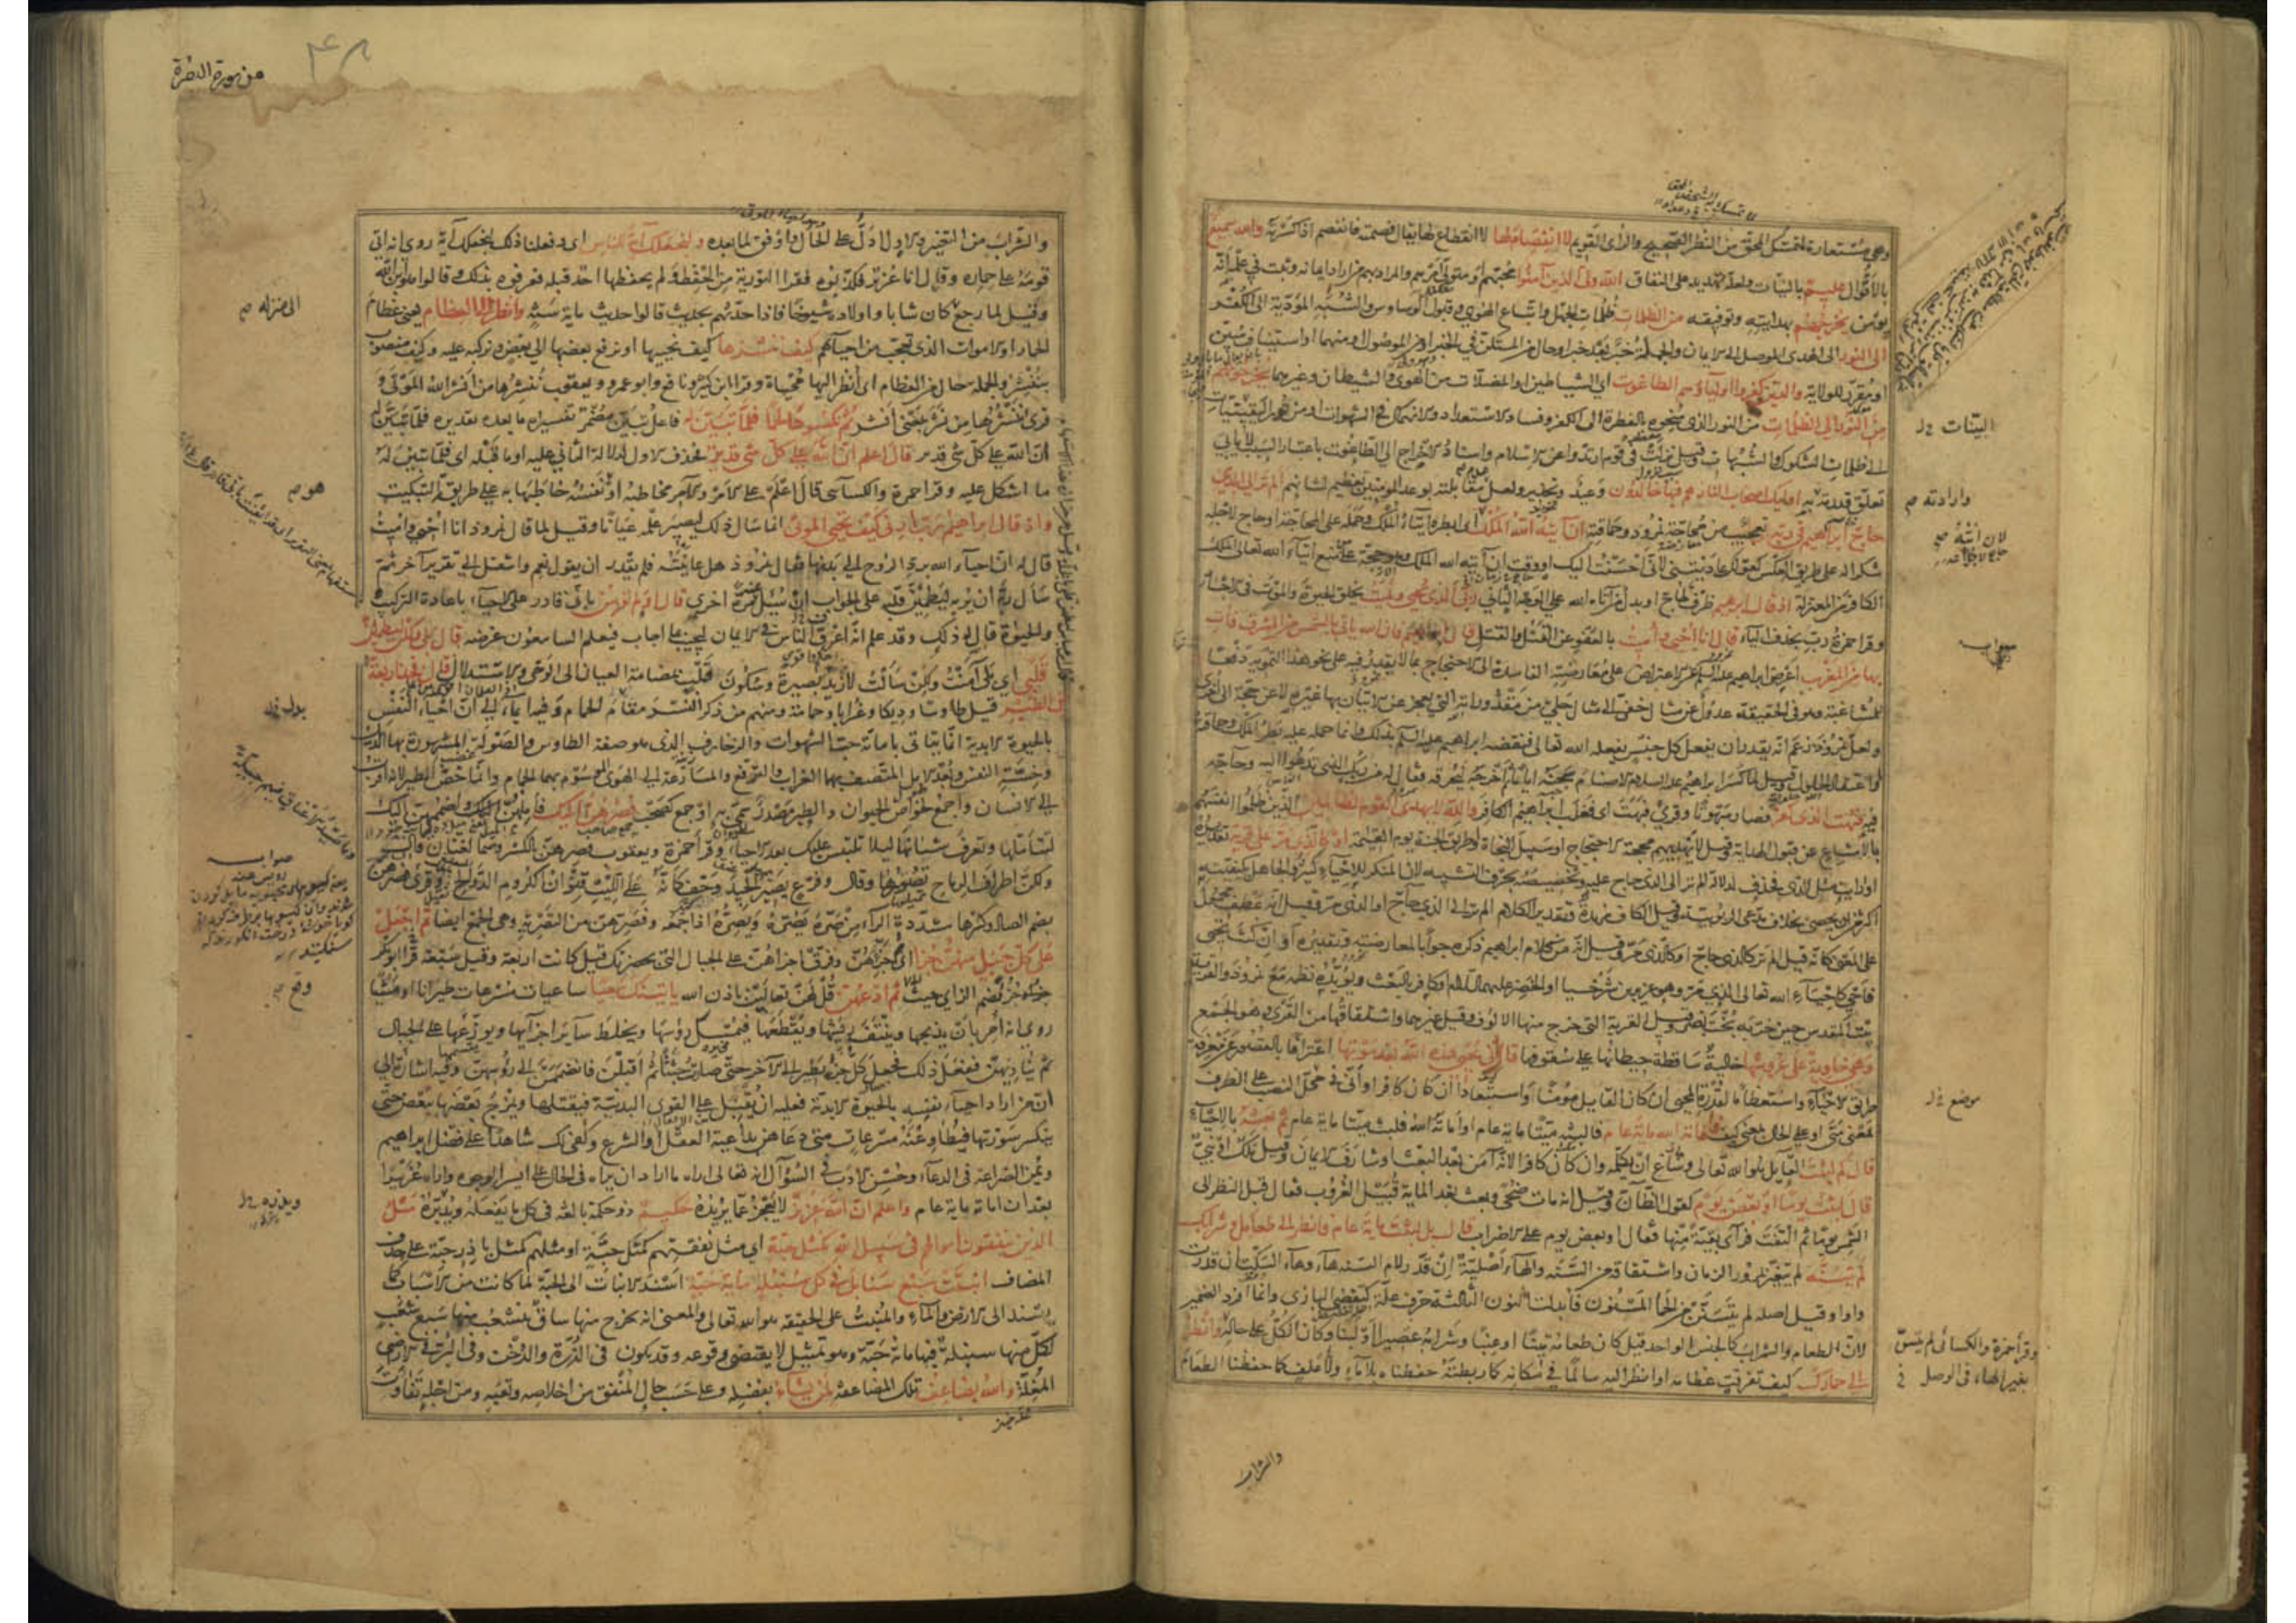 وهي مستعارة لمتمسك المحق من النظر الصحيح والرأي القويم لا انفصام لها لا انقطاع لها يقال فصمته فانفصم اذا كسرته والله سميع
بالاقوال عليم بالنيات ولعله تهديد على النفاق الله ولي الذين آمنوا محبهم او متولي امرهم والمراد بهم من اراد ايمانه وثبت في علمه انه
يؤمن يخرجهم بهدايته وتوفيقه من الظلمات ظلمات الجهل واتباع الهوى وقبول الوساوس والشبه المؤدية الى الكفر
الى النور الى الهدى الموصل الى الايمان والجملة خبر بعد خبر او حال من المستكن في الخبر او من الموصول او منهما او استيناف مبين
او مقرر للولاية والذين كفروا اولياؤهم الطاغوت اي الشياطين او المضلات من الهوى والشيطان وغيرهما يخرجونهم
من النور الى الظلمات من النور الذي منحوه بالفطرة الى الكفر وفساد الاستعداد والانهماك في الشهوات او من نور البينات
الى ظلمات الشكوك والشبهات وقيل نزلت في قوم ارتدوا عن الاسلام واسناد الاخراج الى الطاغوت باعتبار السبب لا يابى
تعلق قدرته به اولئك اصحاب النار هم فيها خالدون وعيد وتحذير ولعل عدم مقابلته بوعد المؤمنين تعظيم لشانهم الم تر الى الذي
حاج ابراهيم في ربه تعجيب من محاجة نمرود وحماقته ان آتيه الله الملك اي ابطره ايتاء الملك وحمله على المحاجة او حاج لاجله
شكرا له على طريق العكس كقولك عاديتني لاني احسنت اليك او وقت ان آتيه الله الملك وهو حجة على منع ايتاء الله تعالى الملك
الكافر من المعتزلة اذ قال ابراهيم ظرف لحاج او بدل من آتاه الله على الوجه الثاني ربي الذي يحيي ويميت بخلق الحيوة والموت في الاجساد
وقرا حمزة رب بحذف الياء قال انا احيي واميت بالعفو عن القتل والقتل قال ابراهيم فان الله ياتي بالشمس من المشرق فات
بها من المغرب اعرض ابراهيم عليه السلم عن الاعتراض على معارضته الفاسدة الى الاحتجاج بما لا يقدر فيه على نحو هذا التمويه دفعا
للمشاغبة وهو في الحقيقة عدول عن مثال خفي الى مثال جلي من مقدوراته التي يعجز عن الاتيان بها غيره لا عن حجة الى اخرى
ولعل نمروذ زعم انه يقدر ان يفعل كل جنس يفعله الله تعالى فنقضه ابراهيم عليه السلم بذلك وانما حمله عليه بطر الملك وحماقته
او اعتقاد الحلول وقيل لما كسر ابراهيم عليه السلام الاصنام سجنه اياما ثم اخرجه ليحرقه فقال له من ربك الذي تدعوا اليه وحاجه
فيه فبهت الذي كفر فصار مبهوتا وقرئ فبهت اي فغلب ابراهيم الكافر والله لا يهدي القوم الظالمين الذين ظلموا انفسهم
بالامتناع عن قبول الهداية وقيل لا يهديهم محجة الاحتجاج او سبيل النجاة او طريق الجنة يوم القيمة او كالذي مر على قرية تقديره
او ارايت مثل الذي فحذف لدلالة الم تر الى الذي حاج عليه وتخصيصه بحرف التشبيه لان المنكر للاحياء كثير والجاهل بكيفيته
اكثر من ان يحصى بخلاف مدعي الربوبية وقيل الكاف مزيدة وتقدير الكلام الم تر الى الذي حاج او الذي مر وقيل انه عطف محمول
على المعنى كانه قيل الم تر كالذي حاج او كالذي مر وقيل انه من كلام ابراهيم ذكره جوابا لمعارضته وتقديره او ان كنت تحيي
فاحي كاحياء الله تعالى الذي مر وهو عزير بن شرخيا او الخضر عليهما السلام او كافر بالبعث ويؤيده نظمه مع نمروذ والقرية
بيت المقدس حين خربه بخت نصر وقيل القرية التي خرج منها الالوف وقيل غيرهما واشتقاقها من القري وهو الجمع
وهي خاوية على عروشها خالية ساقطة حيطانها على سقوفها قال انى يحيي هذه الله بعد موتها اعترافا بالقصور عن معرفة
طريق الاحياء واستعظاما لقدرة المحيي ان كان القايل مؤمنا واستبعادا ان كان كافرا وانى في محل النصب على الظرف
بمعنى متى او على الحال بمعنى كيف فاماته الله ماية عام فالبثه ميتا ماية عام او اماته الله فلبث ميتا ماية عام ثم بعثه بالاحياء
قال كم لبثت القايل هو الله تعالى وشاع ان يكلمه وان كان كافرا لانه آمن بعد البعث او شارف الايمان وقيل ملك او نبي
قال لبثت يوما او بعض يوم كقول الظان وقيل انه مات ضحى وبعث بعد الماية قبيل الغروب فقال قبل النظر الى
الشمس يوما ثم التفت فراى بقية منها فقال او بعض يوم على الاضراب قال بل لبثت ماية عام فانظر الى طعامك وشرابك
لم يتسنه لم يتغير بمرور الزمان واشتقاقه من السنة والهاء اصلية ان قدر لام السنه هاء وهاء السكت ان قدرت
واوا وقيل اصله لم يتسنن من الحما المسنون فابدلت النون الثالثة حرف علة كتقضي البازي وانما افرد الضمير
لان الطعام والشراب كالجنس الواحد قيل كان طعامه تينا او عنبا وشرابه عصيرا او لبنا وكان الكل على حاله وانظر
الى حمارك كيف تفرقت عظامه او انظر اليه سالما في مكانه كما ربطته حفظناه بلا ماء ولا علف كما حفظنا الطعام
البينات خ ل
وارادته م
لان انشه م
صواب
موضع خ ل
وقرأ حمزة والكسائي لم يتسن
بغير الهاء في الوصل
والشراب
من سورة البقرة
والشراب من التغير والاول ادل على الحال واوفق لما بعده ولنجعلك آية للناس اي وفعلنا ذلك لنجعلك آية روي انه اتى
قومه على حماره وقال انا عزير فكذبوه فقرا التورية من الحفظ ولم يحفظها احد قبله فعرفوه بذلك وقالوا هو ابن الله
وقيل لما رجع كان شابا واولاده شيوخا فاذا حدثهم بحديث قالوا حديث ماية سنة وانظر الى العظام يعني عظام
الحمار او الاموات الذي تعجب من احيآئهم كيف ننشزها كيف نحييها او نرفع بعضها الى بعض ونركبه عليه وكيف منصوب
بننشز والجملة حال من العظام اي انظر اليها محياة وقرا ابن كثير ونافع وابو عمرو ويعقوب ننشرها من انشر الله الموتى و
قرئ ننشرها من نشر بمعنى انشر ثم نكسوها لحما فلما تبين له فاعل تبين مضمر تفسيره ما بعده تقديره فلما تبين له
ان الله على كل شي قدير قال اعلم ان الله على كل شي قدير فحذف الاول لدلالة الثاني عليه او ما قبله اي فلما تبين له
ما اشكل عليه وقرا حمزة والكسآئي قال اعلم على الامر والآمر مخاطبه او نفسه خاطبها به على طريقة التبكيت
واذ قال ابراهيم رب ارني كيف تحيي الموتى انما سال ذلك ليصير علمه عيانا وقيل لما قال نمروذ انا احيي واميت
قال له ان احيآء الله برد الروح الى بدنها فقال نمروذ هل عاينته فلم يقدر ان يقول نعم وانتقل الى تقرير آخر ثم
سال ربه ان يريه ليطمئن قلبه على الجواب ان سئل عنه مرة اخرى قال اولم تؤمن باني قادر على الاحيآء باعادة التركيب
والحيوة قال له ذلك وقد علم انه اعرق الناس في الايمان ليجيب بما اجاب فيعلم السامعون غرضه قال بلى ولكن ليطمئن
قلبي اي بلى آمنت ولكن سالت لازيد بصيرة وسكون قلب بمضامة العيان الى الوحي والاستدلال قال فخذ اربعة
من الطير قيل طاوسا وديكا وغرابا وحمامة ومنهم من ذكر النسر مقام الحمام وفيه ايماء الى ان احياء النفس
بالحيوة الابدية انما يتاتى باماتة حب الشهوات والزخارف الذي هو صفة الطاوس والصولة المشهور بها الديك
وخسة النفس وبعد الامل المتصف بهما الغراب والترفع والمسارعة الى الهوى الموسوم بهما الحمام وانما خص الطير لانه اقرب
الى الانسان واجمع لخواص الحيوان والطير مصدر سمي به او جمع كصحب فصرهن اليك فاملهن اليك واضممهن اليك
لتتاملها وتعرف شياتها ليلا تلتبس عليك بعد الاحياء وقرأ حمزة ويعقوب فصرهن بالكسر وهما لغتان قال
ولكن اطراف الرماح تصورها وقال وفرع يصير الجيد وحف كانه على الليت قنوان الكروم الدوالح وقرئ فصرهن
بضم الصاد وكسرها مشددة الراء من صره يصره ويصره اذا جمعه وفصرهن من التصرية وهي الجمع ايضا ثم اجعل
على كل جبل منهن جزءا اي جزئهن وفرق اجزاهن على الجبال التي بحضرتك قيل كانت اربعة وقيل سبعة قرا ابو بكر
جزؤ بضم الزاي حيث ثم ادعهن قل لهن تعالين باذن الله ياتينك سعيا ساعيات مسرعات طيرانا او مشيا
روي انه امر بان يذبحها وينتف ريشها ويقطعها فيمسك رؤسها ويخلط ساير اجزآئها ويوزعها على الجبال
ثم يناديهن ففعل ذلك فجعل كل جزء يطير الى الآخر حتى صارت جثثا ثم اقبلن فانضممن الى رؤسهن وفيه اشارة الى
ان من اراد احياء نفسه بالحيوة الابدية فعليه ان يقبل على القوى البدنية فيقتلها ويمزج بعضها ببعض حتى
ينكسر سورتها فيطاوعنه مسرعات متى دعاهن بداعية العقل او الشرع وكفى لك شاهدا على فضل ابراهيم
ويمن الضراعة في الدعآء وحسن الادب في السؤال انه تعالى اراه ما اراد ان يراه في الحال على ايسر الوجوه واراه عزيرا
بعد ان اماته ماية عام واعلم ان الله عزيز لا يعجز عما يريده حكيم ذو حكمة بالغة في كل ما يفعله ويذره مثل
الذين ينفقون اموالهم في سبيل الله كمثل حبة اي مثل نفقتهم كمثل حبة او مثلهم كمثل باذر حبة على حذف
المضاف انبتت سبع سنابل في كل سنبلة ماية حبة اسند الانبات الى الحبة لما كانت من الاسباب كما
يسند الى الارض والماء والمنبت على الحقيقة هو الله تعالى والمعنى انه يخرج منها ساق يتشعب منها سبع شعب
لكل منها سنبلة فيها ماية حبة وهو تمثيل لا يقتضي وقوعه وقد يكون في الذرة والدخن وفي البر في الاراضي
المغلة والله يضاعف تلك المضاعفة لمن يشاء بفضله وعلى حسب حال المنفق من اخلاصه وتعبه ومن اجله تفاوت
هو م
بدل خ ل
صواب
وقع